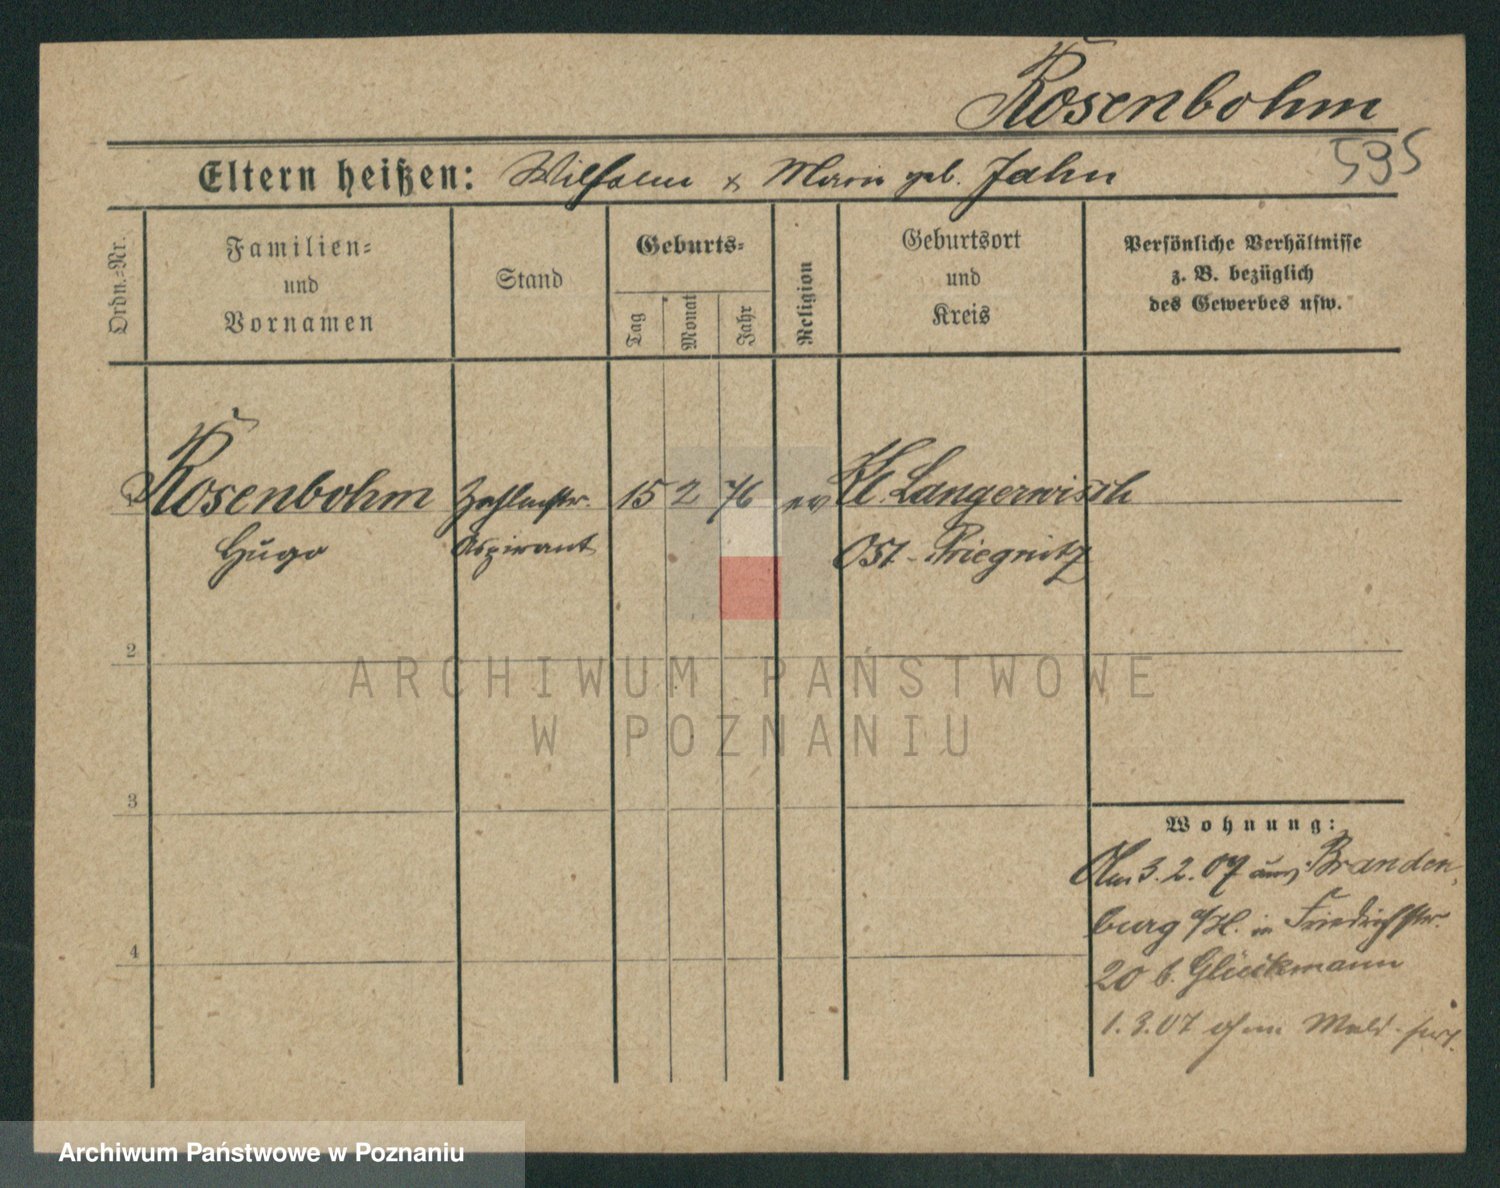 Rosenbohm
595
Eltern heißen: Wilhelm & Marie geb. Jahn
Ordn.-Nr.
Familien-
und
Vornamen
Stand
Geburts-
Tag
Monat
Jahr
Religion
Geburtsort
und
Kreis
Persönliche Verhältnisse
z. B. bezüglich
des Gewerbes usw.
1 Rosenbohm Zahlmstr. 15 2 76 ev Kl. Langerwisch
Hugo Aspirant Ost-Priegnitz
2
3
4
Wohnung:
Am 3.2.07 aus Branden-
burg a/H. in Friedrichstr.
20 b. Glückmann
1.3.07 ohne Meld. fort.
ARCHIWUM PAŃSTWOWE
W POZNANIU
Archiwum Państwowe w Poznaniu